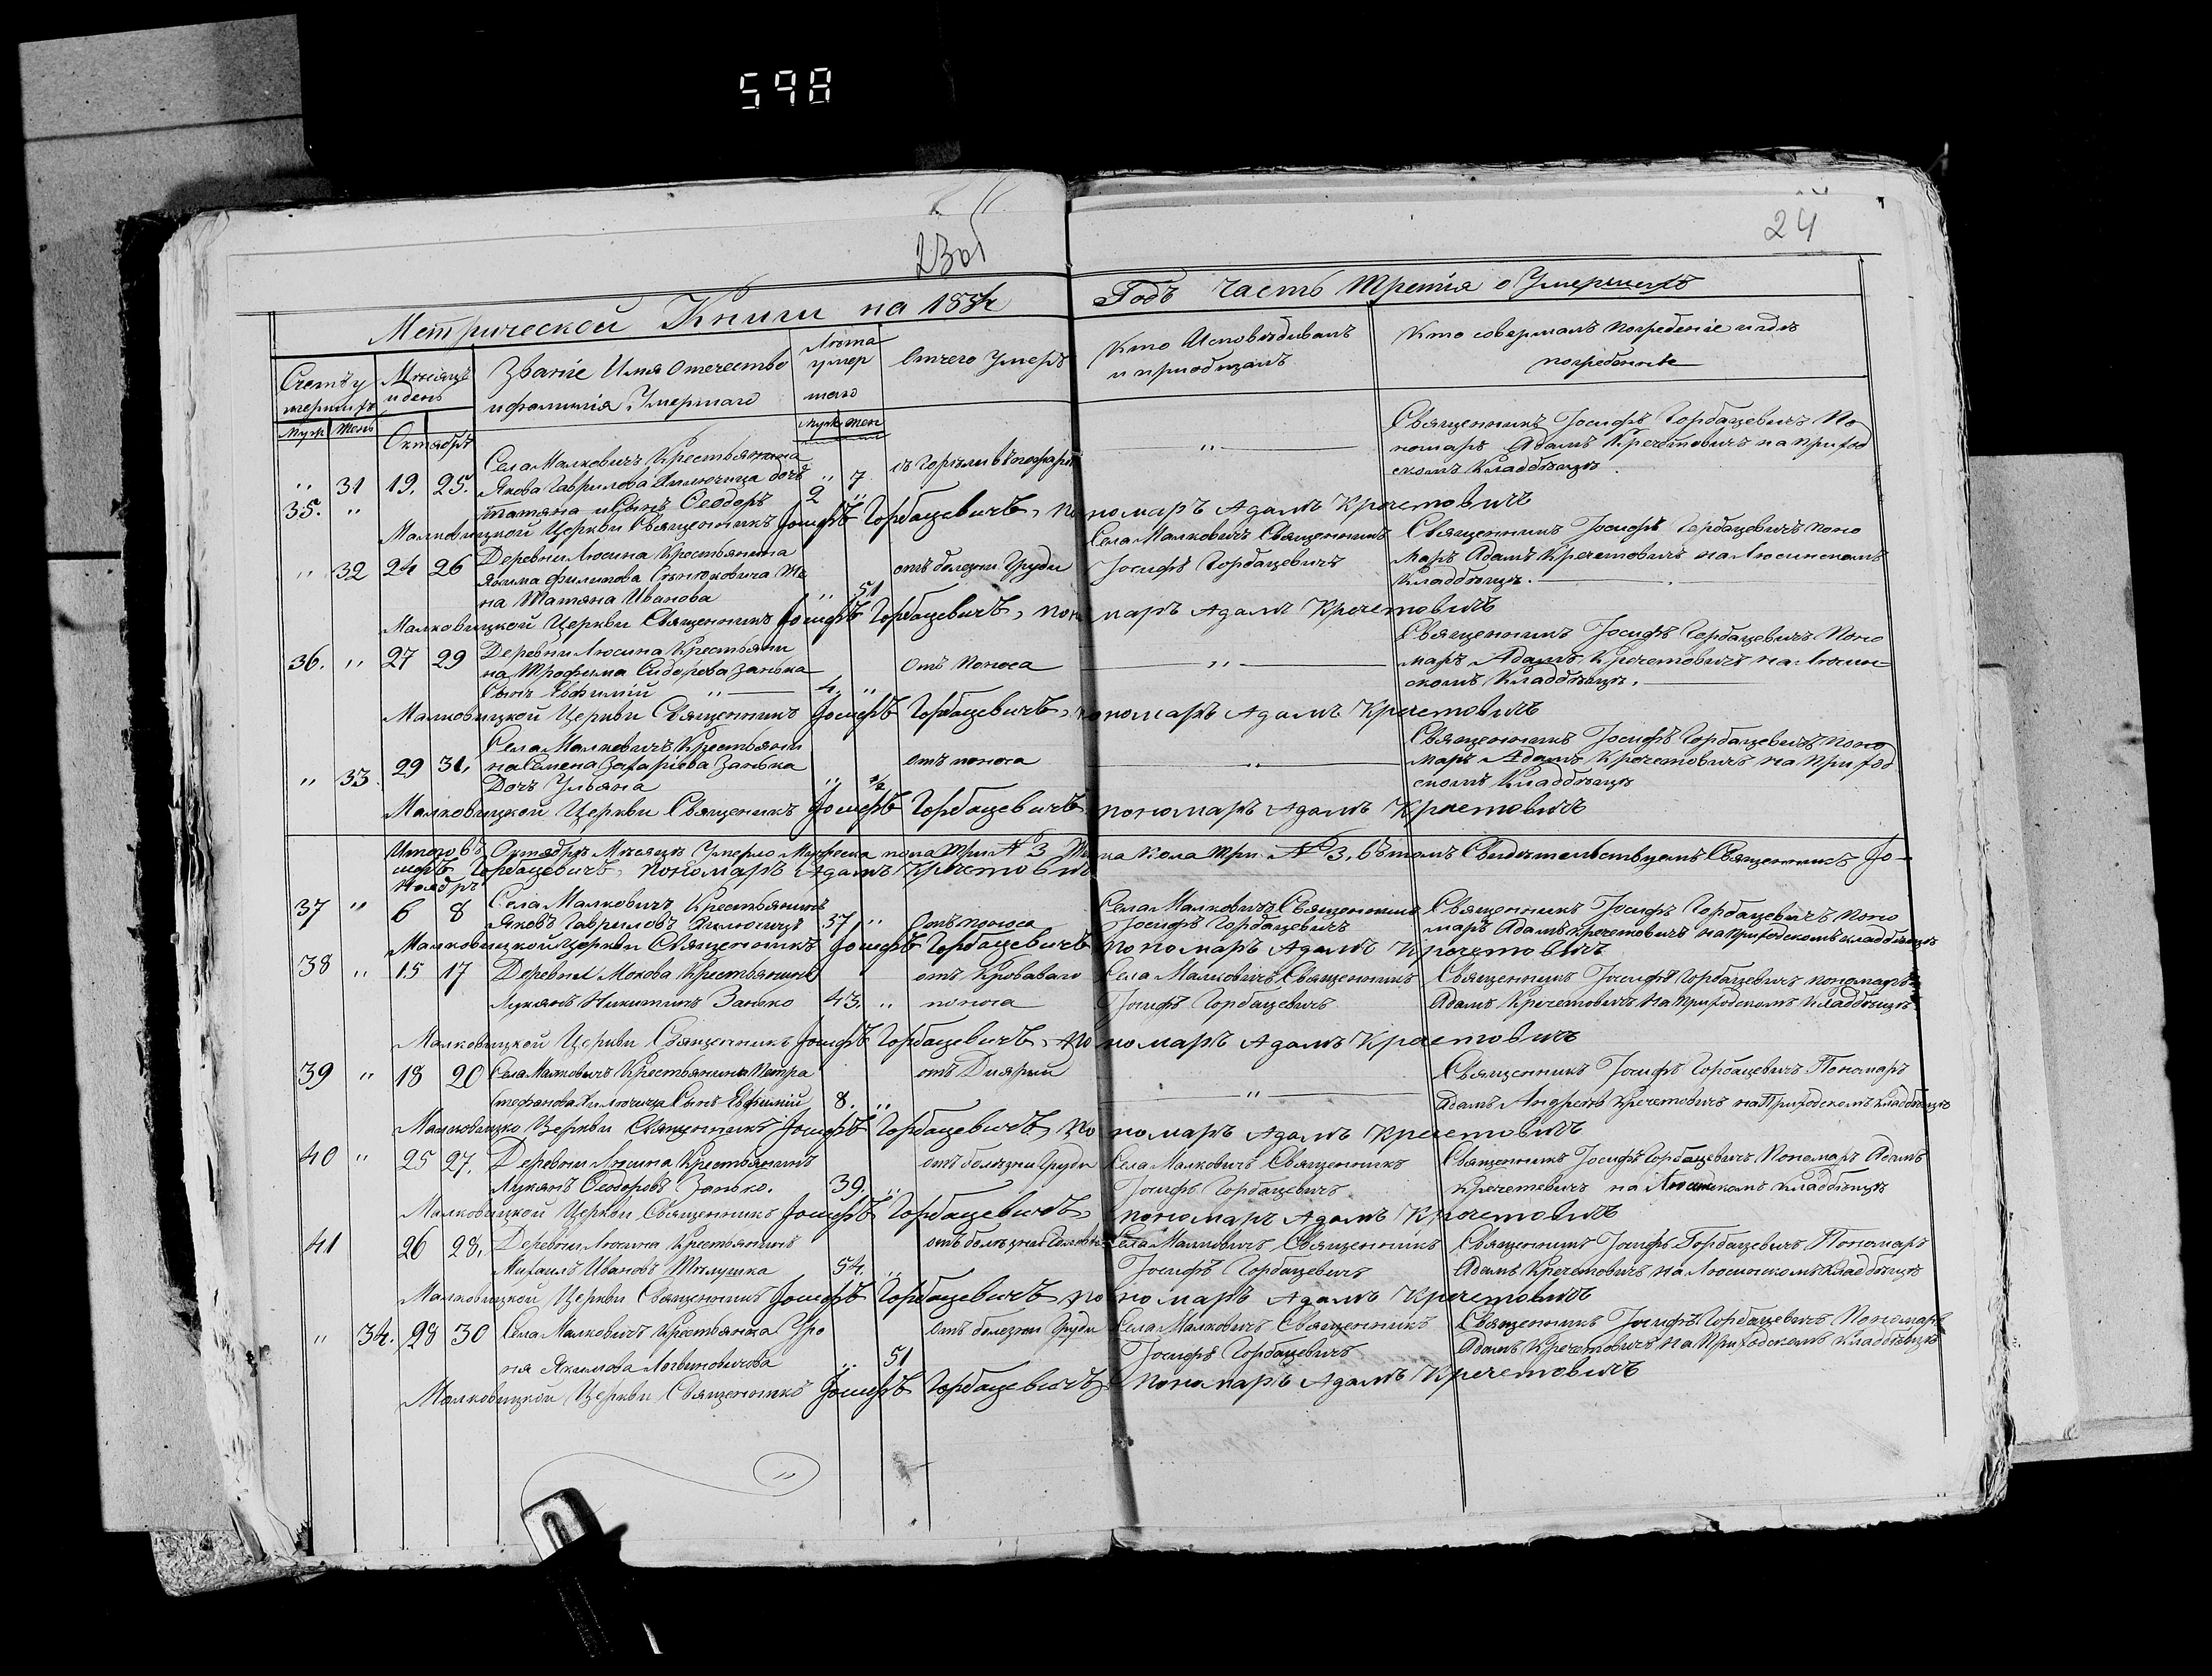 598
23об
24
Метрической Книги на 1854 Годъ Часть Третiя о Умершихъ
Счетъ умершихъ
Муж Жен
Мѣсяцъ и день
Званiе Имя Отечество
и фамилiя Умершаго
Лѣта умершаго
Муж Жен
Отчего Умеръ
Кто Исповѣдывалъ
и приобщалъ
Кто совершалъ погребенiе и гдѣ
погребены
Октябрь
" 31 19. 25.
35. "
Села Малковичъ Крестьянина
Якова Гаврилова дочь " 7
Татяна и Сынъ Феодоръ 2 "
"
Священникъ Iосифъ Горбацевичъ По
номаръ Адамъ Кречетовичъ на приход
скомъ Кладбищѣ.
Малковицкой Церкви Священникъ Iосифъ Горбацевичъ, пономаръ Адамъ Кречетовичъ
" 32 24 26
Деревни Люсина Крестьянина
Якима Филипова Же
на Татяна Иванова " 51
отъ болезни Груди
Села Малковичъ Священникъ
Iосифъ Горбацевичъ
Священникъ Iосифъ Горбацевичъ поно
маръ Адамъ Кречетовичъ на Люсинскомъ
Кладбищѣ.
Малковицкой Церкви Священникъ Iосифъ Горбацевичъ, пономаръ Адамъ Кречетовичъ
36. " 27 29
Деревни Люсина Крестьяни
на Трофима Сидорова Занька
Сынъ Евфимiй 4. "
Отъ Поноса
"
Священникъ Iосифъ Горбацевичъ Поно
маръ Адамъ Кречетовичъ на Люсин
скомъ Кладбищѣ.
Малковицкой Церкви Священникъ Iосифъ Горбацевичъ, пономаръ Адамъ Кречетовичъ
" 33 29 31.
Села Малковичъ Крестьяни
на Семена Захарiева Занька
Дочь Ульяна " ½
отъ поноса
"
Священникъ Iосифъ Горбацевичъ Поно
маръ Адамъ Кречетовичъ на приход
скомъ Кладбищѣ
Малковицкой Церкви Священникъ Iосифъ Горбацевичъ пономаръ Адамъ Кречетовичъ
Итого въ Октябрѣ Мѣсяцѣ Умерло Мужеска пола три № 3 Женска пола три № 3, въ томъ Свидѣтельствуемъ Священникъ Iо-
сифъ Горбацевичъ, пономаръ Адамъ Кречетовичъ
Ноябрь
37 " 6 8
Села Малковичъ Крестьянинъ
Яковъ Гавриловъ 37 "
Отъ поноса
Села Малковичъ Священникъ
Iосифъ Горбацевичъ
Священникъ Iосифъ Горбацевичъ поно
маръ Адамъ Кречетовичъ на приходскомъ кладбищѣ
Малковицкой Церкви Священникъ Iосифъ Горбацевичъ пономаръ Адамъ Кречетовичъ
38 " 15 17
Деревни Мокова Крестьянинъ
Лукянъ Никитинъ Занько 43. "
отъ Кроваваго
поноса
Села Малковичъ Священникъ
Iосифъ Горбацевичъ
Священникъ Iосифъ Горбацевичъ пономаръ
Адамъ Кречетовичъ на приходскомъ кладбищѣ
Малковицкой Церкви Священникъ Iосифъ Горбацевичъ, пономаръ Адамъ Кречетовичъ
39 " 18 20
Села Малковичъ Крестьянина Петра
Стефанова Сынъ Евфимiй 8. "
отъ Дияреи
"
Священникъ Iосифъ Горбацевичъ Пономаръ
Адамъ Андреевъ Кречетовичъ на Приходскомъ кладбищѣ
Малковицко Церкви Священникъ Iосифъ Горбацевичъ, пономаръ Адамъ Кречетовичъ
40 " 25 27.
Деревни Люсина Крестьянинъ
Лукянъ Феодоровъ Занько. 39. "
отъ болѣзни Груди
Села Малковичъ Священникъ
Iосифъ Горбацевичъ
Священникъ Iосифъ Горбацевичъ Пономаръ Адамъ
Кречетовичъ на Люсинскомъ кладбищѣ
Малковицкой Церкви Священникъ Iосифъ Горбацевичъ, пономаръ Адамъ Кречетовичъ
41 26 28.
Деревни Люсина Крестьянинъ
Михаилъ Ивановъ 54. "
отъ болѣзни Головы
Села Малковичъ Священникъ
Iосифъ Горбацевичъ
Священникъ Iосифъ Горбацевичъ Пономаръ
Адамъ Кречетовичъ на Люсинскомъ Кладбищѣ
Малковицкой Церкви Священникъ Iосифъ Горбацевичъ пономаръ Адамъ Кречетовичъ
" 34. 28 30
Села Малковичъ Крестьянка
Якимова Логвиновичова " 51
Отъ болезни Груди
Села Малковичъ Священникъ
Iосифъ Горбацевичъ
Священникъ Iосифъ Горбацевичъ Пономаръ
Адамъ Кречетовичъ на Приходскомъ кладбищѣ
Малковицкой Церкви Священникъ Iосифъ Горбацевичъ пономаръ Адамъ Кречетовичъ